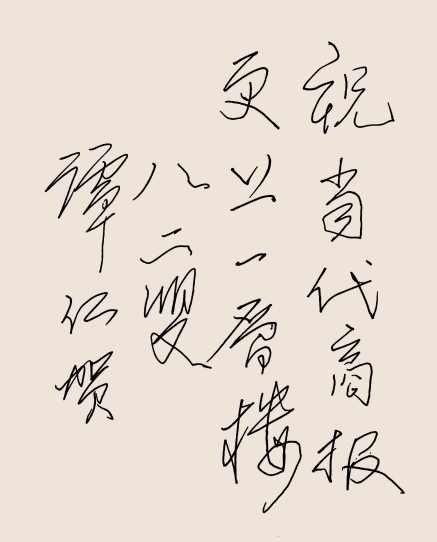 祝当代商报
更上一层楼
八二叟
谭仁贺